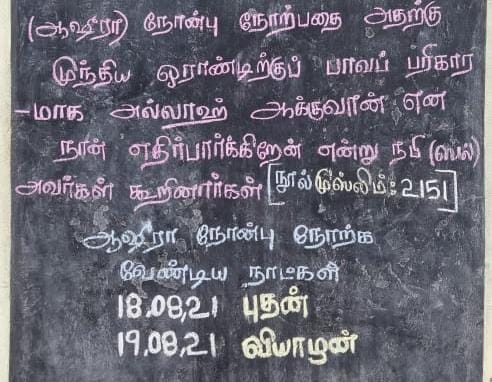 (ஆஷீரா) நோன்பு நோற்பதை அதற்கு
முந்திய ஓராண்டிற்குப் பாவப் பரிகார
-மாக அல்லாஹ் ஆக்குவான் என
நான் எதிர்பார்க்கிறேன் என்று நபி (ஸல்)
அவர்கள் கூறினார்கள் [நூல் முஸ்லிம்: 2151]
ஆஷீரா நோன்பு நோற்க
வேண்டிய நாட்கள்
18.08.21 புதன்
19.08.21 வியாழன்